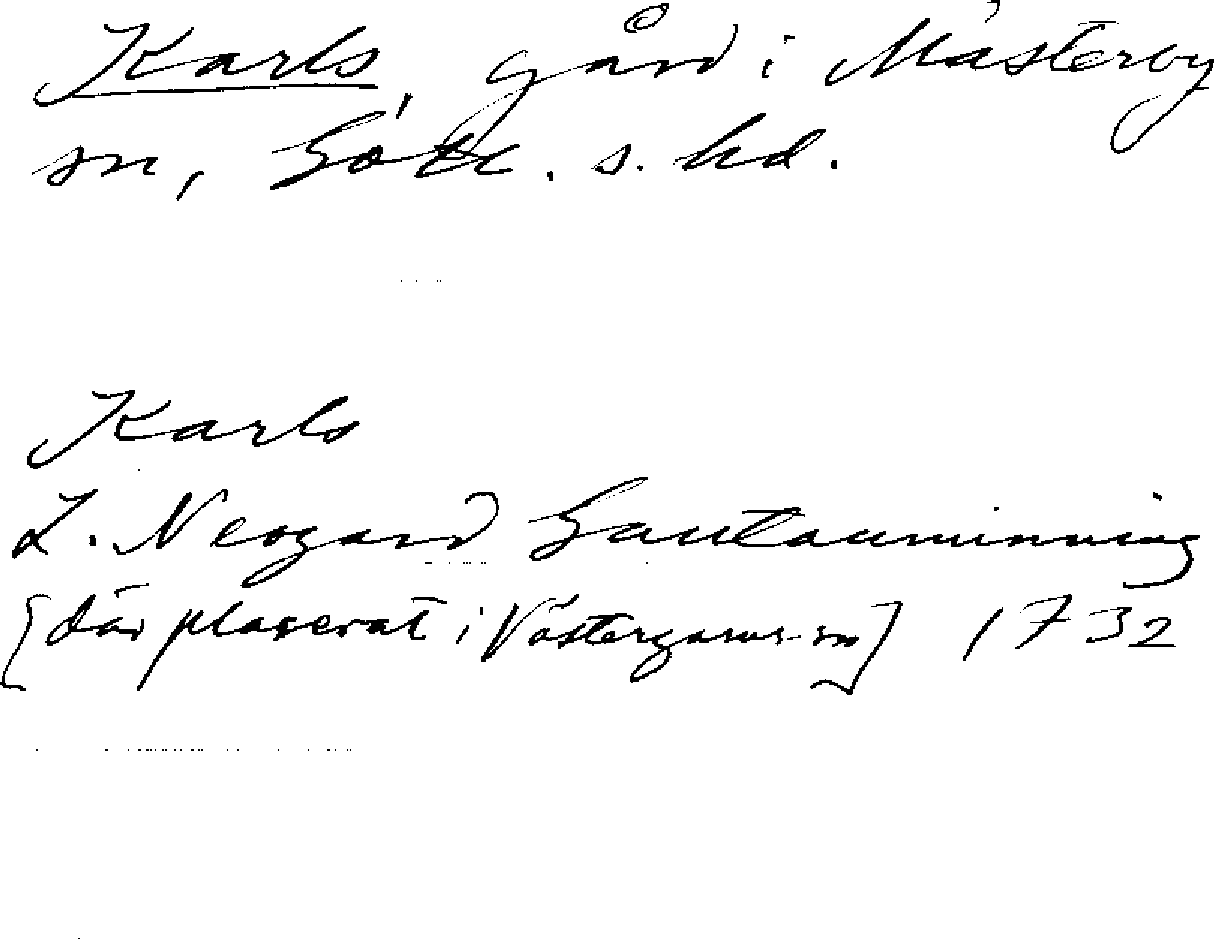 Karls, gård i Mästerby
sn, Gotl. s. hd.
Karls
L. Neogard Gautauminning
[där placerat i Västergarns sn] 1732